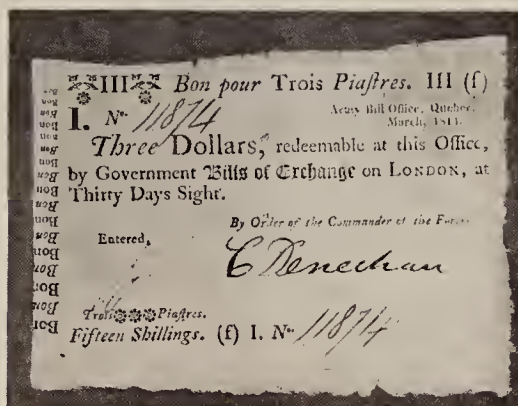 III Bon pour Trois Piastres. III (f)
Army Bill Office, Quebec,
I. No. 11874 March, 1814.
Three Dollars, redeemable at this Office,
by Government Bills of Exchange on LONDON, at
Thirty Days Sight.
By Order of the Commander of the Forces.
Entered,
C Denechau
Trois Piastres.
Fifteen Shillings. (f) I. No. 11874
Bon Bon Bon Bon Bon Bon Bon Bon Bon Bon Bon Bon Bon Bon Bon